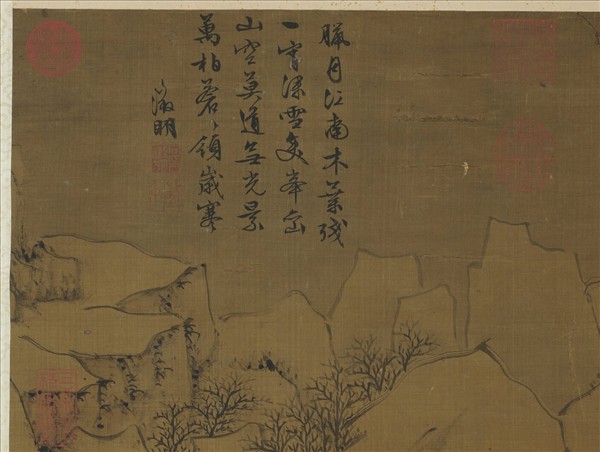 臘月江南木葉殘
一宵深雪失峯巒
山空莫道無光景
萬柏蒼蒼領歲寒
徵明